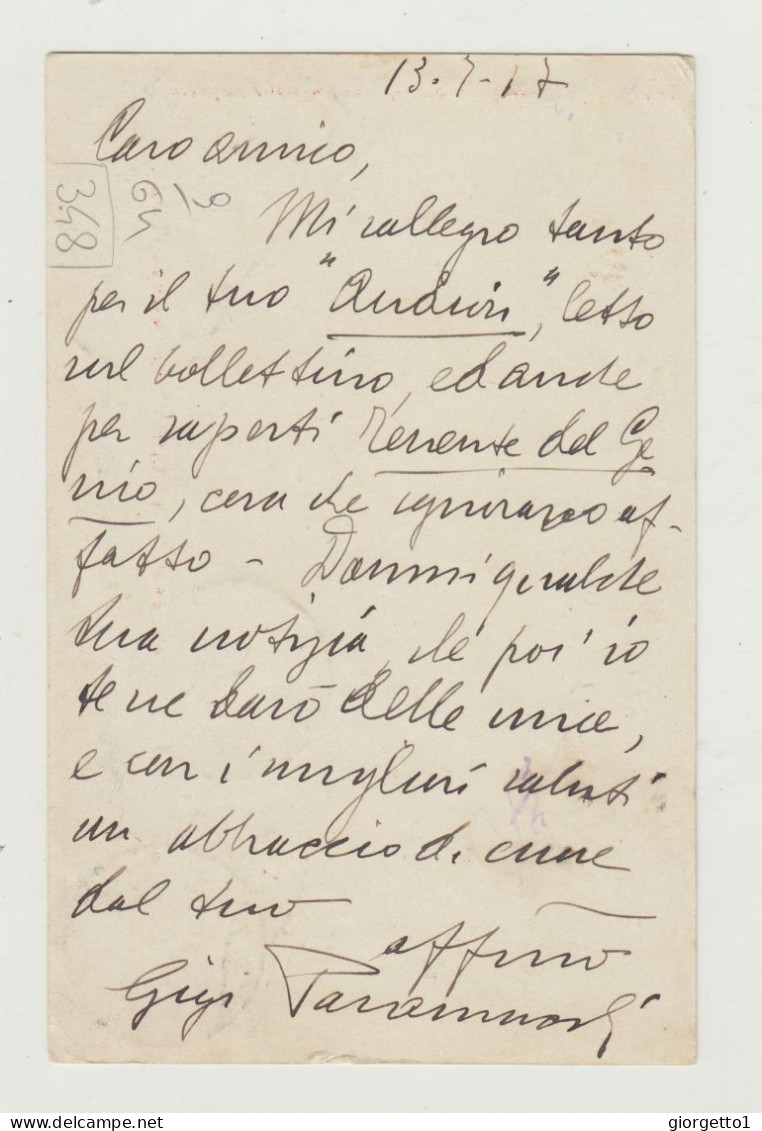 13-7-17
Caro amico,
Mi rallegro tanto
per il tuo " ", letto
sul bollettino, ed anche
per saperti Tenente del Ge
nio, cosa che ignoravo af-
fatto - Dammi qualche
tua notizia, che poi io
te ne darò delle mie,
e con i migliori saluti
un abbraccio di cuore
dal tuo
affmo
Gigi
348
64
9
delcampe.net
giorgetto1